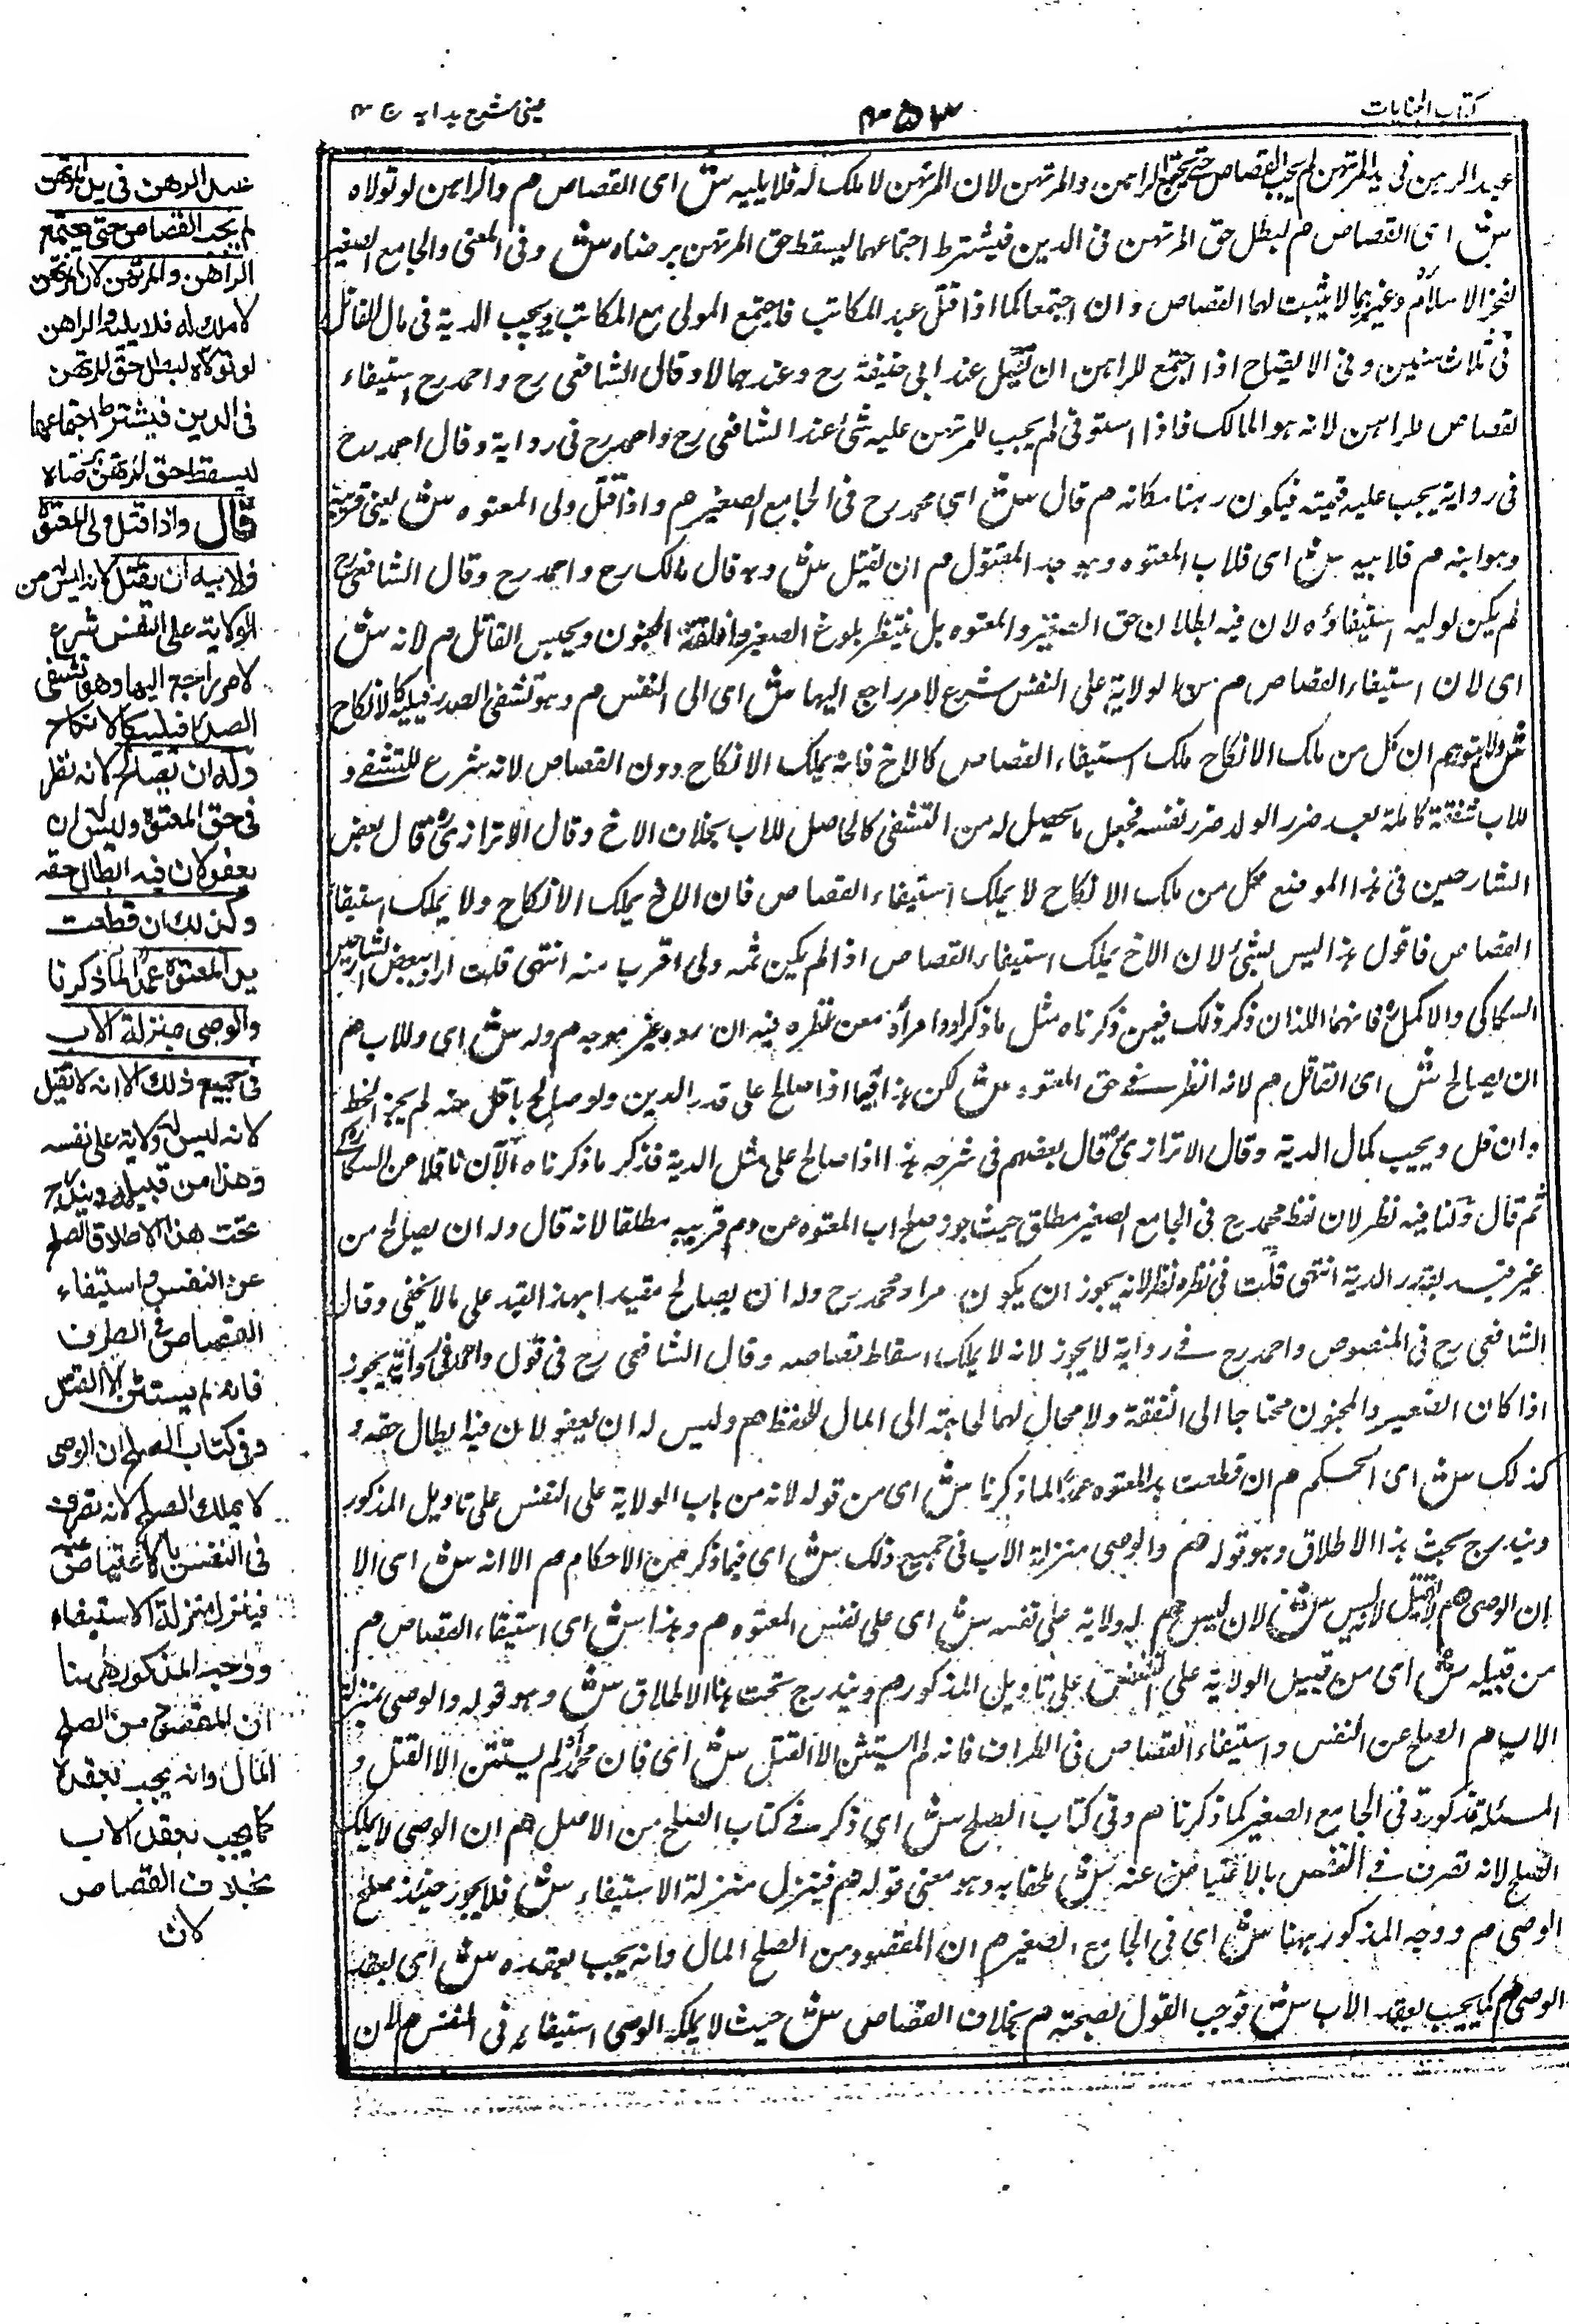 كتاب الجنايات
عینی شرح ہدایہ ج ۴
عبد الرهن فی ید المرتهن لم یجب القصاص حتی یجتمع الراهن والمرتهن لان المرتهن لا ملک له فلا یلیه ش ای القصاص م والراهن لو تولاه
ش ای القصاص م لبطل حق المرتهن فی الدین فیشترط اجتماعهما لیسقط حق المرتهن برضاه ش وفی المغنی والجامع الصغیر
لفخر الاسلام وغیرهما لا یثبت لهما القصاص وان اجتمعا کما اذا قتل عبد المکاتب فاجتمع المولی مع المکاتب ویجب الدیة فی مال القاتل
فی ثلاث سنین وفی الایضاح اذا اجتمع للراهن ان یقتل عند ابی حنیفة رح وعندهما لا وقال الشافعی رح واحمد رح استیفاء
لقصاص للراهن لانه هو المالک فاذا استوفی لم یجب للمرتهن علیه شئ عند الشافعی رح واحمد رح فی روایة وقال احمد رح
فی روایة یجب علیه قیمته فیکون رهنا مکانه م قال ش ای محمد رح فی الجامع الصغیر م واذا قتل ولی المعتوه ش یعنی قریبه
وهو ابنه م فلابیه ش ای فلاب المعتوه وهو جد المقتول م ان یقتل ش وبه قال مالک رح واحمد رح وقال الشافعی رح
لم یکن لولیه استیفاؤه لان فیه ابطالا لان حق الصغیر والمعتوه بل ینتظر بلوغ الصغیر وافاقة المجنون ویحبس القاتل م لانه ش
ای لان استیفاء القصاص م من الولایة علی النفس شرع لامر راجع الیها ش ای الی النفس م وهو تشفی الصدر فیلیه کالانکاح
ش ولا یتوهم ان کل من ملک الانکاح ملک استیفاء القصاص کالاخ فانه یملک الانکاح دون القصاص لانه شرع للتشفی و
للاب شفقة کاملة یعد ضرر الولد ضرر نفسه فجعل ما یحصل له من التشفی کالحاصل للاب بخلاف الاخ وقال الاترازی رح قال بعض
الشارحین فی هذا الموضع کل من ملک الانکاح لا یملک استیفاء القصاص فان الاخ یملک الانکاح ولا یملک استیفاء
القصاص فاقول هذا لیس بشئ لان الاخ یملک استیفاء القصاص اذا لم یکن ثمه ولی اقرب منه انتهی قلت اراد ببعض الشارحین
السکاکی والاکمل رح فانهما اللذان ذکر ذلک فیمن ذکرناه مثل ما ذکر معن نظره فیه ان رده غیر موجه م وله ش ای وللاب م
ان یصالح ش ای القاتل م لانه انظر فی حق المعتوه ش لکن هذا فیما اذا صالح علی قدر الدین ولو صالح باقل منه لم یجز الحط
وان قل ویجب کمال الدیة وقال الاترازی رح قال بعضهم فی شرحه هذا اذا صالح علی مثل الدیة فذکر ما ذکرناه الآن ناقلا عن السکاکی
ثم قال ولنا فیه نظر لان لفظ محمد رح فی الجامع الصغیر مطلق حیث جوز صلح اب المعتوه عن دم قریبه مطلقا لانه قال وله ان یصالح من
غیر قید بقدر الدیة انتهی قلت فی نظره نظر لانه یجوز ان یکون مراد محمد رح وله ان یصالح مقیدا بهذا القید علی ما لا یخفی وقال
الشافعی رح فی المنصوص واحمد رح فی روایة لا یجوز لانه لا یملک اسقاط قصاصه وقال الشافعی رح فی قول واحمد فی روایة یجوز
اذا کان الصغیر والمجنون محتاجا الی النفقة ولا محال لهما لحاجته الی المال للحفظ م ولیس له ان یعفو لان فیه ابطال حقه و
کذلک ش ای الحکم م ان قطعت ید المعتوه عمدا لما ذکرنا ش ای من قوله لانه من باب الولایة علی النفس علی تاویل المذکور
ویندرج تحت هذا الاطلاق وهو قوله م والوصی بمنزلة الاب فی جمیع ذلک ش ای فیما ذکر من الاحکام م الا انه ش ای الا
ان الوصی م لا یقتل لانه لیس ش لان لیس م له ولایة علی نفسه ش ای علی نفس المعتوه م وهذا ش ای استیفاء القصاص م
من قبیله ش ای من قبیل الولایة علی النفس علی تاویل المذکور م ویندرج تحت هذا الاطلاق ش وهو قوله والوصی بمنزلة
الاب م الصلح عن النفس واستیفاء القصاص فی الطراف فانه لم یستثن الا القتل ش ای فان محمدا لم یستثن الا القتل و
المسئلة مذکورة فی الجامع الصغیر کما ذکرنا م وفی کتاب الصلح ش ای ذکر فی کتاب الصلح من الاصل م ان الوصی لا یملک
الصلح لانه تصرف فی النفس بالاعتیاض عنه ش ملحقا به وهو معنی قوله م فینزل منزلة الاستیفاء ش فلا یجوز حینئذ صلح
الوصی م ووجه المذکور ههنا ش ای فی الجامع الصغیر م ان المقصود من الصلح المال وانه یجب بعقده ش ای بعقد
الوصی م کما یجب بعقد الاب ش فوجب القول بصحته م بخلاف القصاص ش حیث لا یملکه الوصی استیفاء فی النفس م لان
عبد الرهن فی ید المرتهن
لم یجب القصاص حتی یجتمع
الراهن والمرتهن لان المرتهن
لا ملک له فلا یلیه والراهن
لو تولاه لبطل حق المرتهن
فی الدین فیشترط اجتماعهما
لیسقط حق المرتهن برضاه
قال واذا قتل ولی المعتوه
فلابیه ان یقتل لانه لیس من
الولایة علی النفس شرع
لامر راجع الیها وهو تشفی
الصدر فیلیه کالانکاح
وله ان یصالح لانه نظر
فی حق المعتوه ولیس له ان
یعفو لان فیه ابطال حقه
وکذلک ان قطعت
ید المعتوه عمدا لما ذکرنا
والوصی بمنزلة الاب
فی جمیع ذلک الا انه لا یقتل
لانه لیس له ولایة علی نفسه
وهذا من قبیله ویندرج
تحت هذا الاطلاق الصلح
عن النفس واستیفاء
القصاص فی الطرف
فانه لم یستثن الا القتل
وفی کتاب الصلح ان الوصی
لا یملک الصلح لانه تصرف
فی النفس بالاعتیاض عنه
فینزل منزلة الاستیفاء
ووجه المذکور ههنا
ان المقصود من الصلح
المال وانه یجب بعقده
کما یجب بعقد الاب
بخلاف القصاص
لان